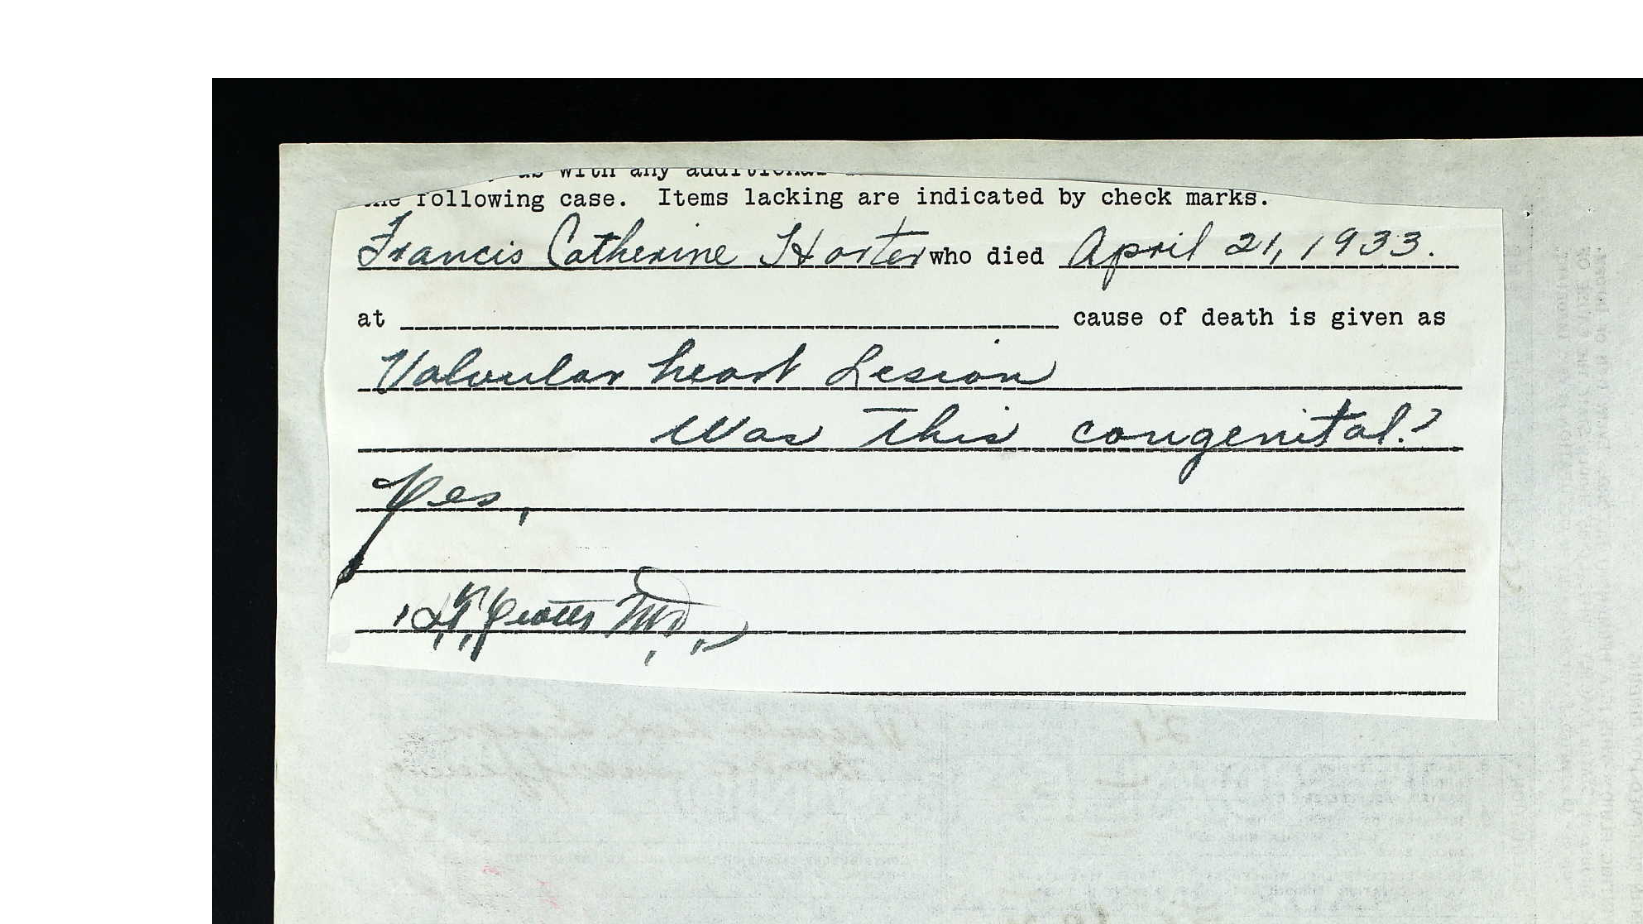 with any additional
the following case. Items lacking are indicated by check marks.
Francis Catherine Horter who died April 21, 1933.
at ______ cause of death is given as
Valvular heart Lesion
Was this congenital?
Yes,
M.D.